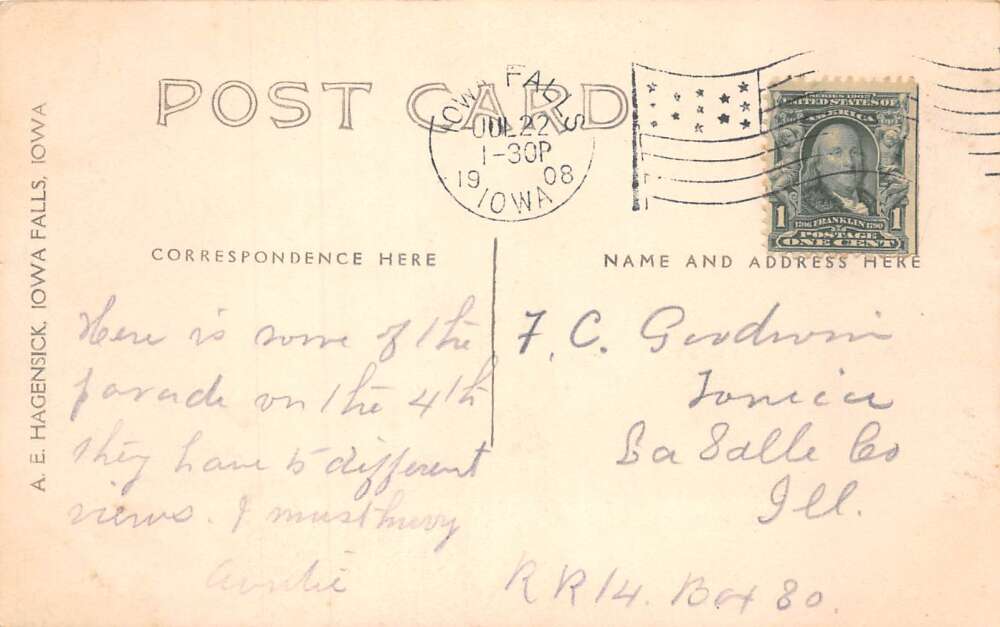 POST CARD
IOWA FALLS
JUL 22
1-30P
19 08
IOWA
SERIES 1902
UNITED STATES OF
AMERICA
1 1
1706 FRANKLIN 1790
POSTAGE
ONE CENT
A. E. HAGENSICK, IOWA FALLS, IOWA
CORRESPONDENCE HERE
Here is some of the
parade on the 4th
they have 15 different
views. I must hurry
Auntie
NAME AND ADDRESS HERE
F. C. Goodwin
Tonica
La Salle Co
Ill.
R R 14. Box 80.